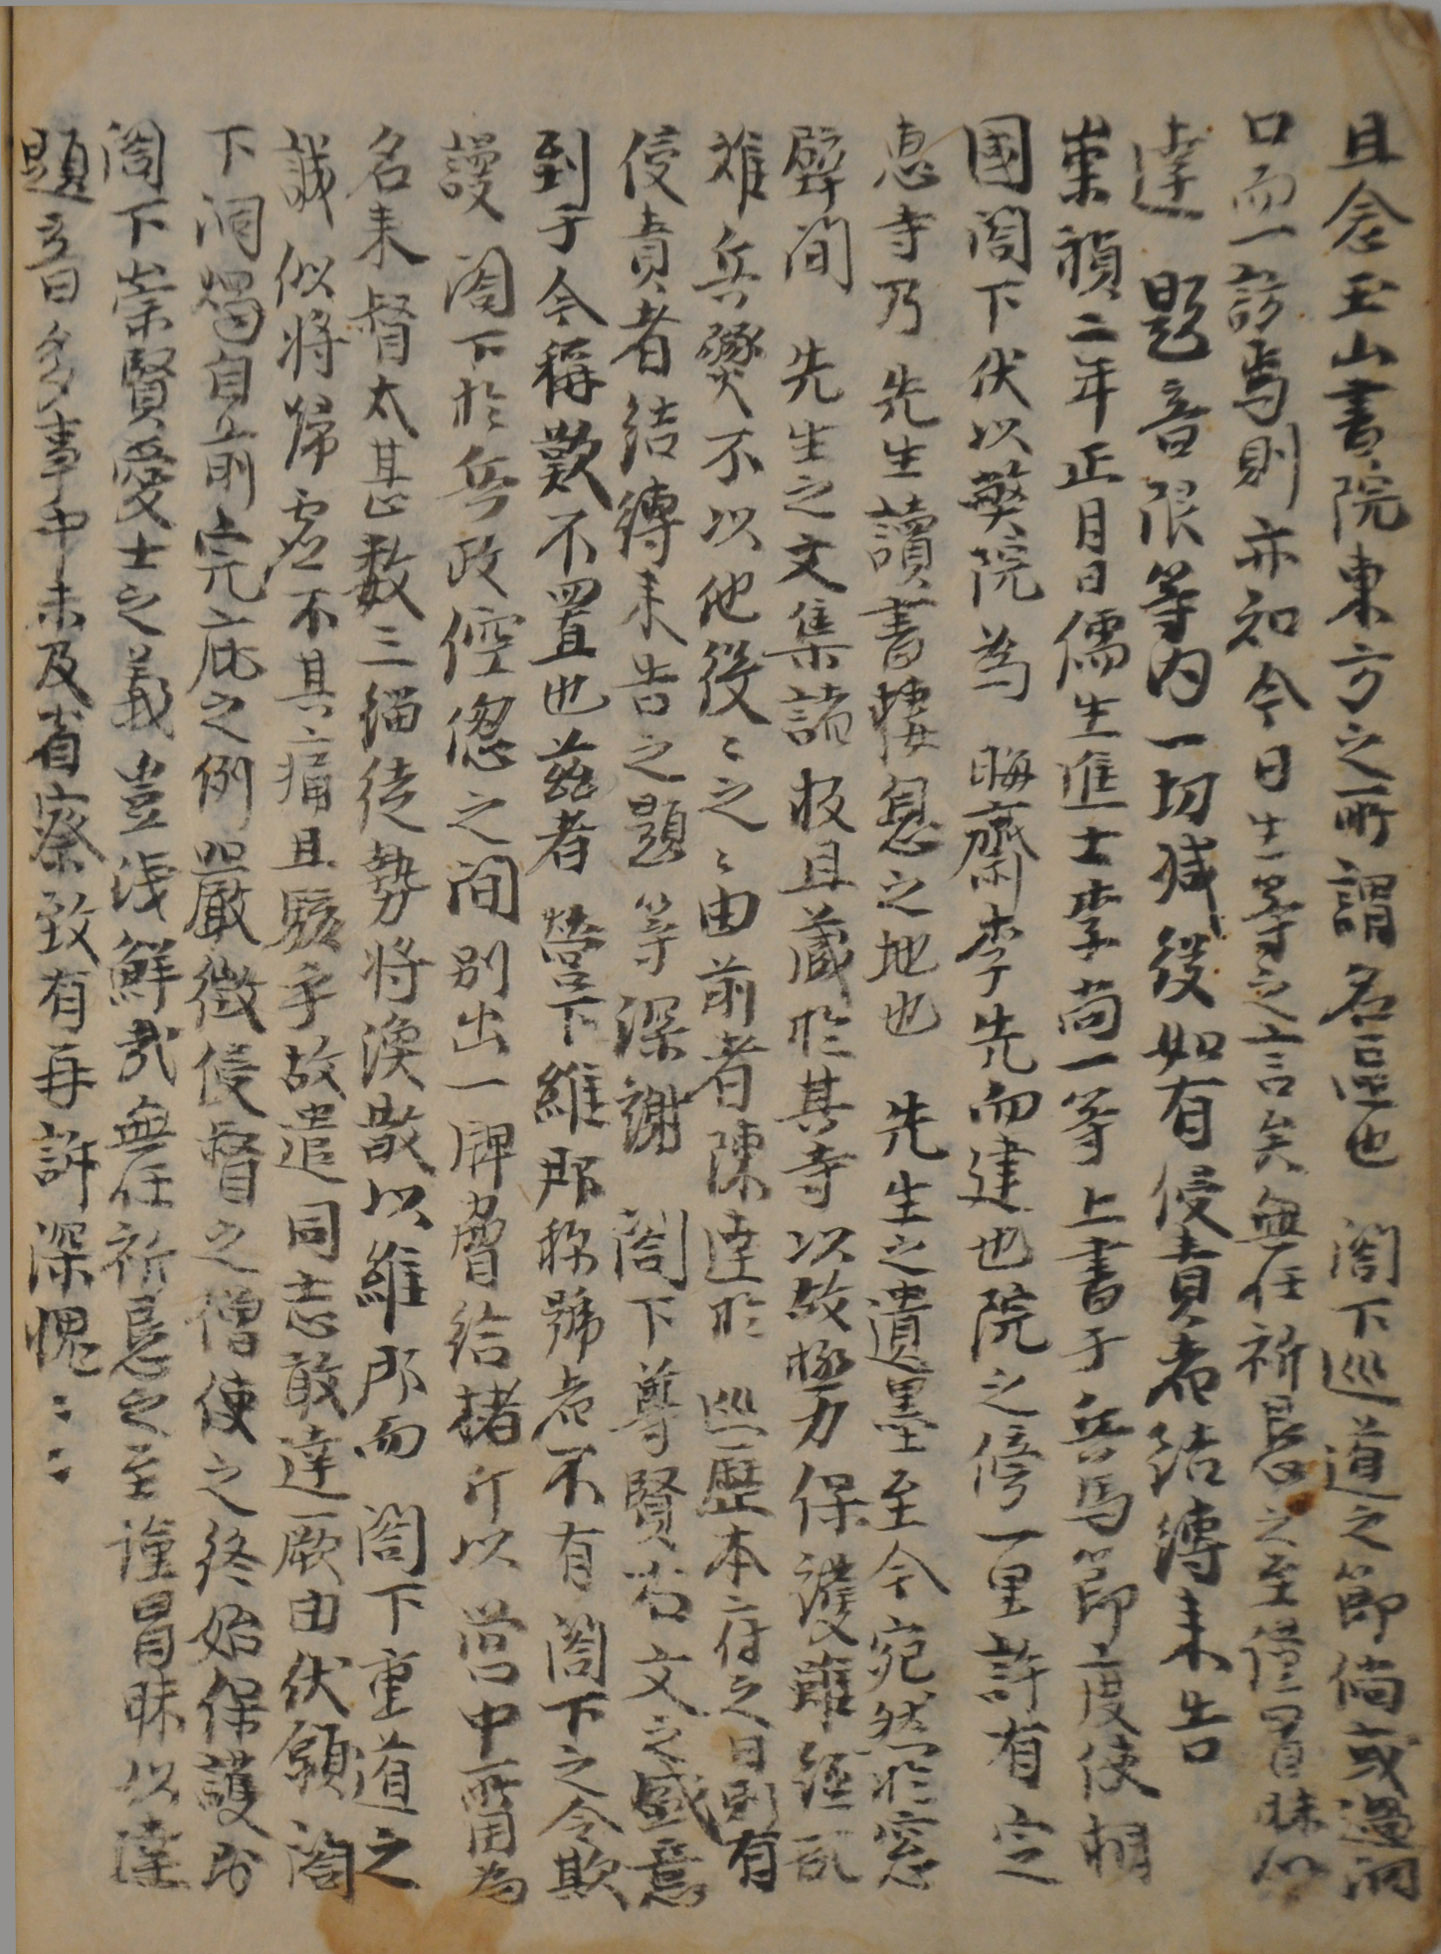 且念玉山書院東方之所謂名區也 閤下巡道之節倘或過洞
口而一訪焉則亦知今日生等之言矣無任祈懇之至謹冒昧以
達 題音限等內一切減役如有侵責者結縛來告
崇禎二年正月日儒生進士李尚一等上書于兵馬節度使相
國閤下伏以弊院爲 晦齋李先而建也院之傍一里許有定
惠寺乃 先生讀書棲息之地也 先生之遺墨至今宛然於窓
壁間 先生之文集諸板且藏於其寺以故極力保護雖經乱
难兵燹不以他役〻之〻由前者陳達於 巡歷本府之日則有
侵責者結縛來告之題等深謝 閤下尊賢右文之盛意
到于今稱歎不置也茲者 營下維那称號者不有 閤下之令欺
謾 閤下於兵政倥偬之間別出一牌脅給楮斤以営中所用為
名來督太甚数三緇徒勢將渙散以維那而 閤下重道之
誠似將歸虛不其痛且駭乎故遣同志敢達厥由伏願 閤
下洞燭自前完庇之例嚴徵侵督之僧使之終始保護則
閤下崇賢愛士之義豈淺鮮哉無任祈懇之至謹冒昧以達
題音曰多事中未及省察致有再訴深愧〻〻